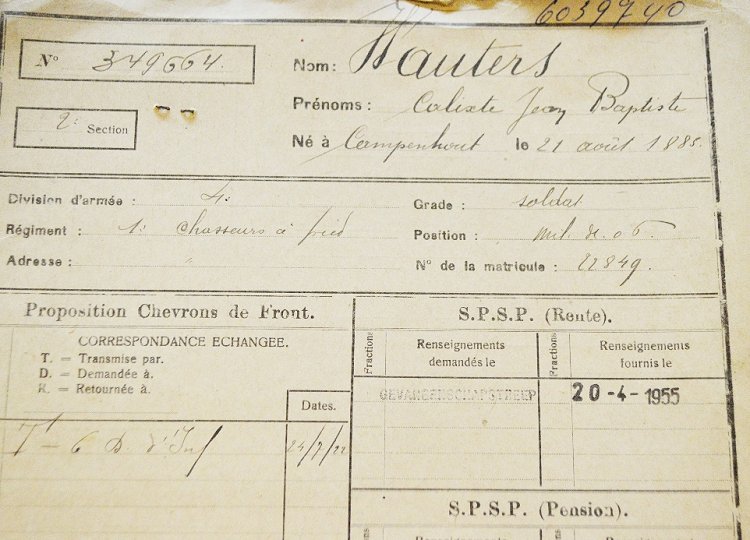 6039740
N° 349664.
Nom: Wauters
Prénoms: Calixte Jean Baptiste
2e Section
Né à Campenhout le 21 août 1885
Division d'armée : 4.
Grade : soldat
Régiment : 1: chasseurs à pied
Position : mil. de 06
Adresse :
N° de la matricule : 22849.
Proposition Chevrons de Front.
S.P.S.P. (Rente).
CORRESPONDANCE ECHANGEE.
T. = Transmise par.
D. = Demandée à.
R. = Retournée à.
Fractions
Renseignements
demandés le
Fractions
Renseignements
fournis le
Dates.
GEVANGENSCHAPSTREEP
20-4-1955
T - 6 D. d'Inf
24/7/22
S.P.S.P. (Pension).
Fractions
Renseignements
Fractions
Renseignements